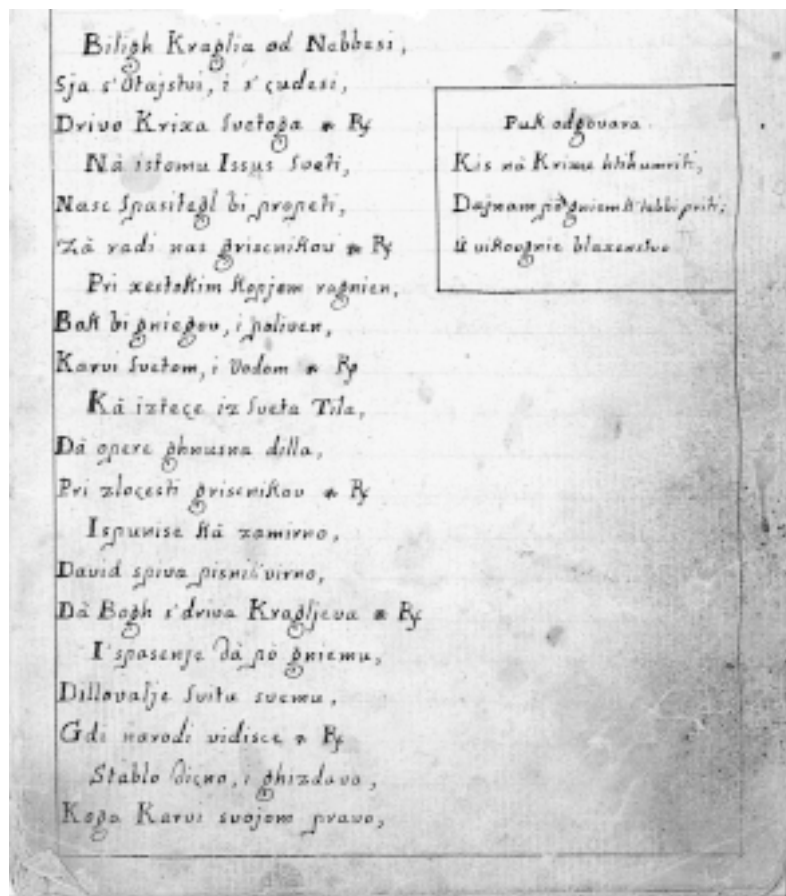 Biligh Kraglia od Nebbesi,
Sja s' Otajstvi, i s' çudesi,
Drivo Krixa Svetoga * ℟
Nà istomu Issus Sveti,
Nasc Spasitegl bi propeti,
Zà radi nas griscnikov * ℟
Pri xestokim Kopjem ragnien,
Bok bi gniegov, i poliven,
Karvi Svetom, i Vodom * ℟
Kà izteçe iz Sveta Tila,
Dà opere ghnusna dilla,
Pri zloçesti griscnikov * ℟
Ispunise kà zamirno,
David spiva pisnih virno,
Dà Bogh s' driva Kragljeva * ℟
I' spasenje dà pò gniemu,
Dillovalje Svitu svemu,
Gdi narodi vidisce * ℟
Stablo diçno, i ghizdavo,
Koga Karvi svojom pravo,
Puk odgovara.
Kis nà Krixu htih umriti,
Daj nam pò gniem k' tebbi priti,
ù vikovgnie blaxenstvo